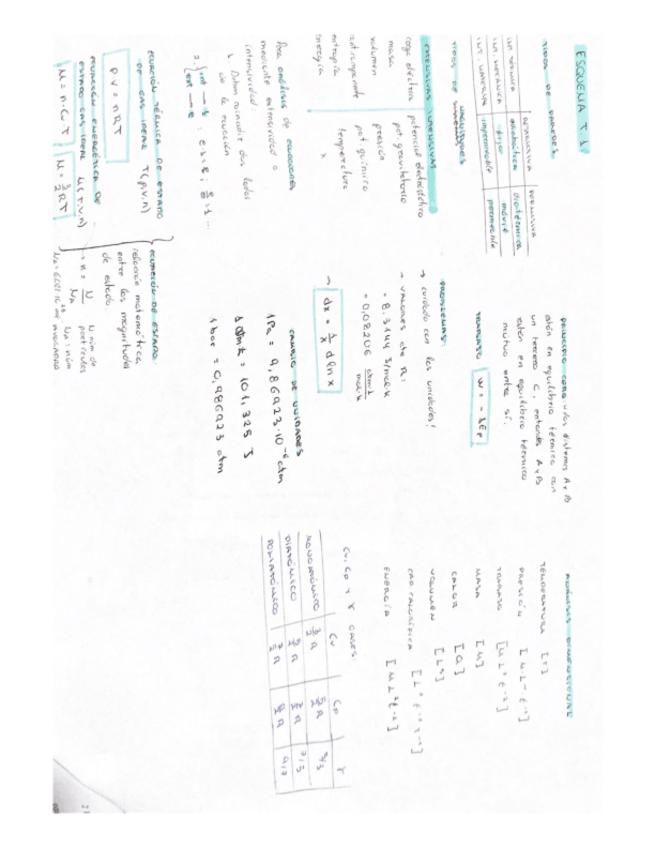 ESQUEMA T.1
TIPOS DE PAREDES
RESTRICTIVA
PERMISIVA
INT. TÉRMICA adiabática diatérmica
INT. MECÁNICA fija móvil
INT. MATERIAL impermeable permeable
TIPOS DE MAGNITUDES
EXTENSIVAS INTENSIVAS
carga eléctrica potencial electrostático
masa pot. gravitatorio
volumen presión
cant. componente pot. químico
entropía temperatura
energía x
Para análisis de ecuaciones
mediante extensividad o
intensividad:
1. Deben coincidir dos lados
de la ecuación
2. { int → 1
ext → e
ECUACIÓN TÉRMICA DE ESTADO
DE GAS IDEAL T(p,v,n)
PV = nRT
ECUACIÓN ENERGÉTICA DE
ESTADO GAS IDEAL U(T,V,n)
U = n·Cv T
U = 3/2 RT
PRINCIPIO CERO: si dos sistemas A y B
están en equilibrio térmico con
un tercero C, entonces A y B
están en equilibrio térmico
mutuo entre sí.
TRABAJO
PROBLEMAS:
→ cuidado con las unidades!
→ VALORES DE R:
= 8.3144 J/mol K
= 0,08206 atm·l / mol·K
→ dx = 1/x d ln x
CAMBIO DE UNIDADES
1 Pa = 9,86923·10⁻⁶ atm
1 atm·l = 101,325 J
1 bar = 0,986923 atm
ECUACIÓN DE ESTADO:
relación matemática
entre las magnitudes
de estado
→ n = N / NA
N núm de partículas
NA: núm AVOGADRO
ANÁLISIS DIMENSIONAL
TEMPERATURA [T]
PRESIÓN [M L⁻¹ t⁻²]
TRABAJO [M L² t⁻²]
MASA [M]
CALOR [Q]
VOLUMEN [L³]
CAP CALORÍFICA
ENERGÍA [M L² t⁻²]
Cv, Cp y γ GASES:
Cv Cp γ
MONOATÓMICO 3/2 R 5/2 R 5/3
DIATÓMICO 5/2 R 7/2 R 7/5
POLIATÓMICO 7/2 R 9/2 R 9/7